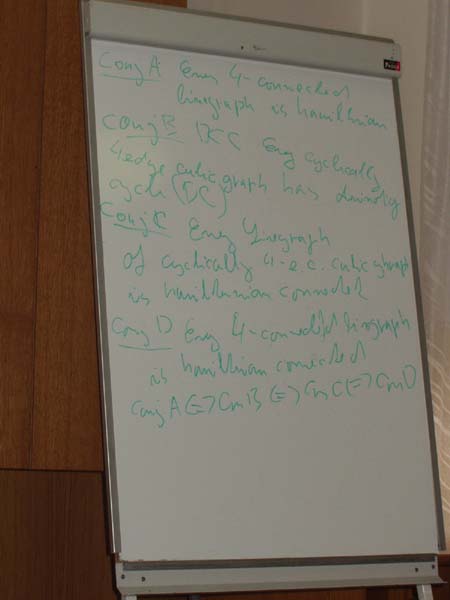 Conj A Every 4-connected
linegraph is hamiltonian
Conj B DCC Every cyclically
4edge cubic graph has dominating
cycle (DC)
Conj C Every linegraph
of cyclically 4-e.c. cubic graph
is hamiltonian connected
Conj D Every 4-connected linegraph
is hamiltonian connected
Conj A <=> Conj B <=> Conj C <=> Conj D